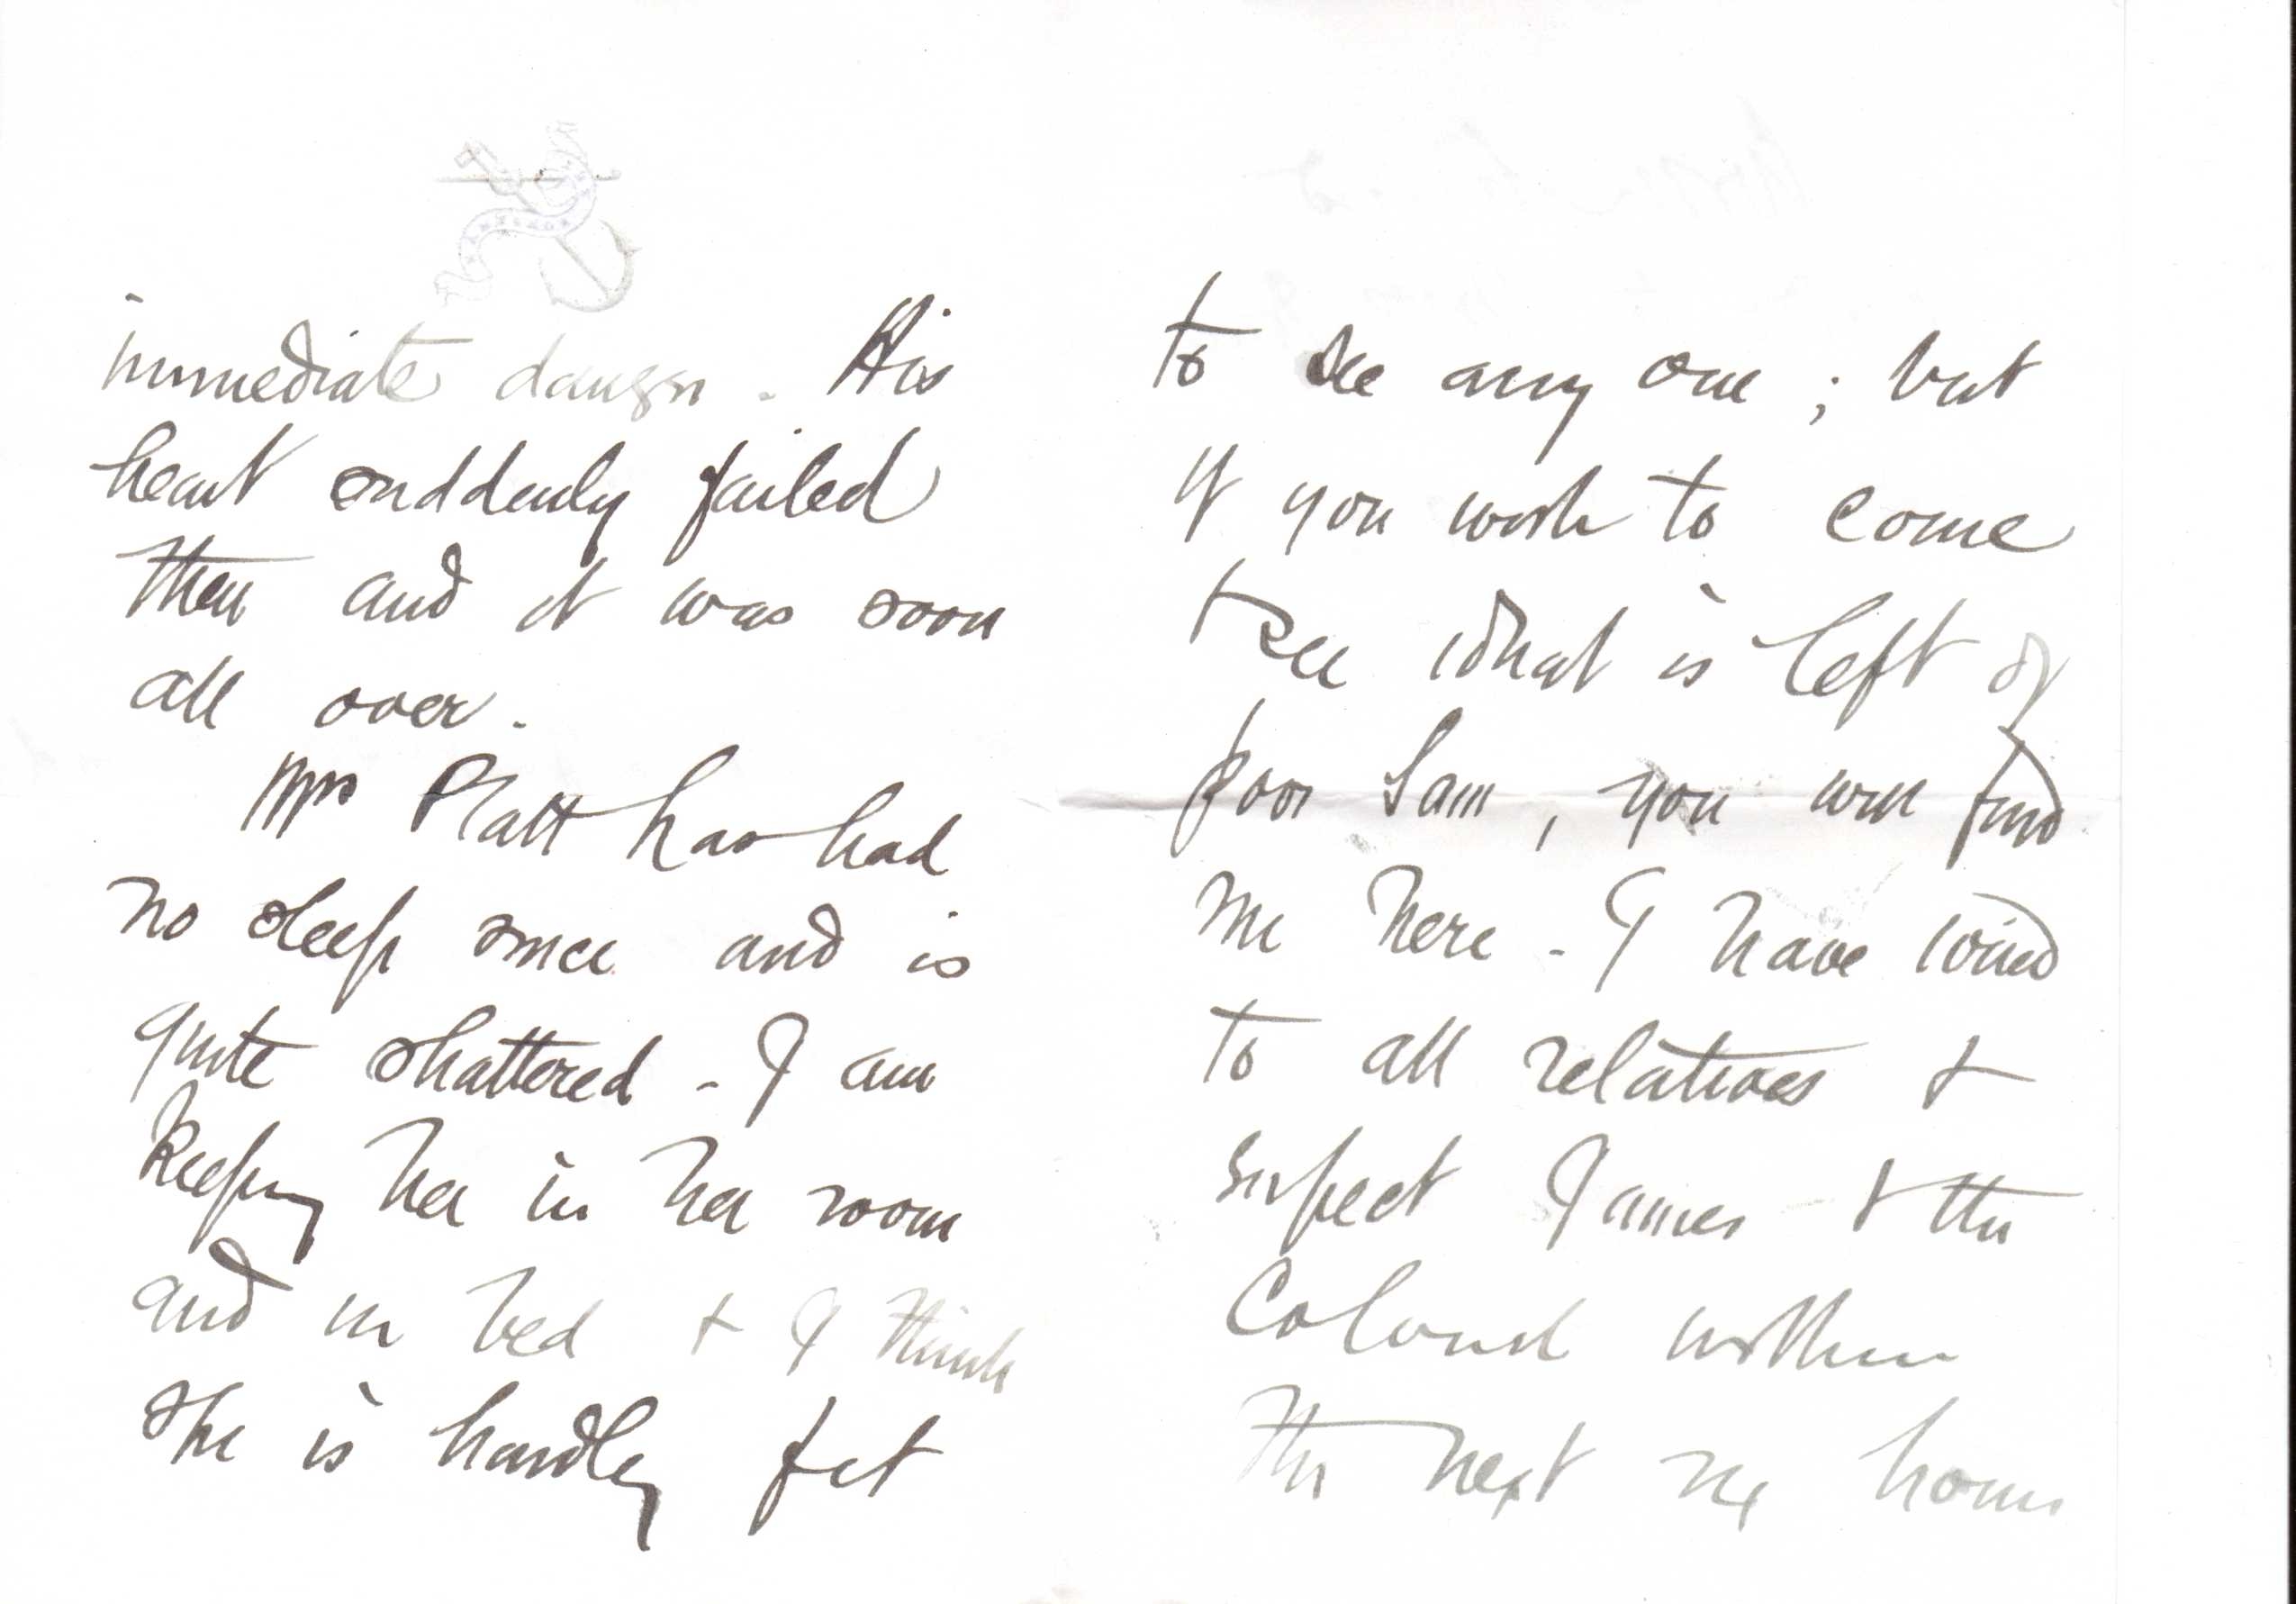 immediate danger. His
heart suddenly failed
then and it was soon
all over.
Mrs Platt has had
no sleep since and is
quite shattered - I am
keeping her in her room
and in bed & I think
she is hardly fit
to see any one; but
if you wish to come
& see what is left of
poor Sam, you will find
me here - I have wired
to all relatives &
expect James & the
Colonel within
the next six hours